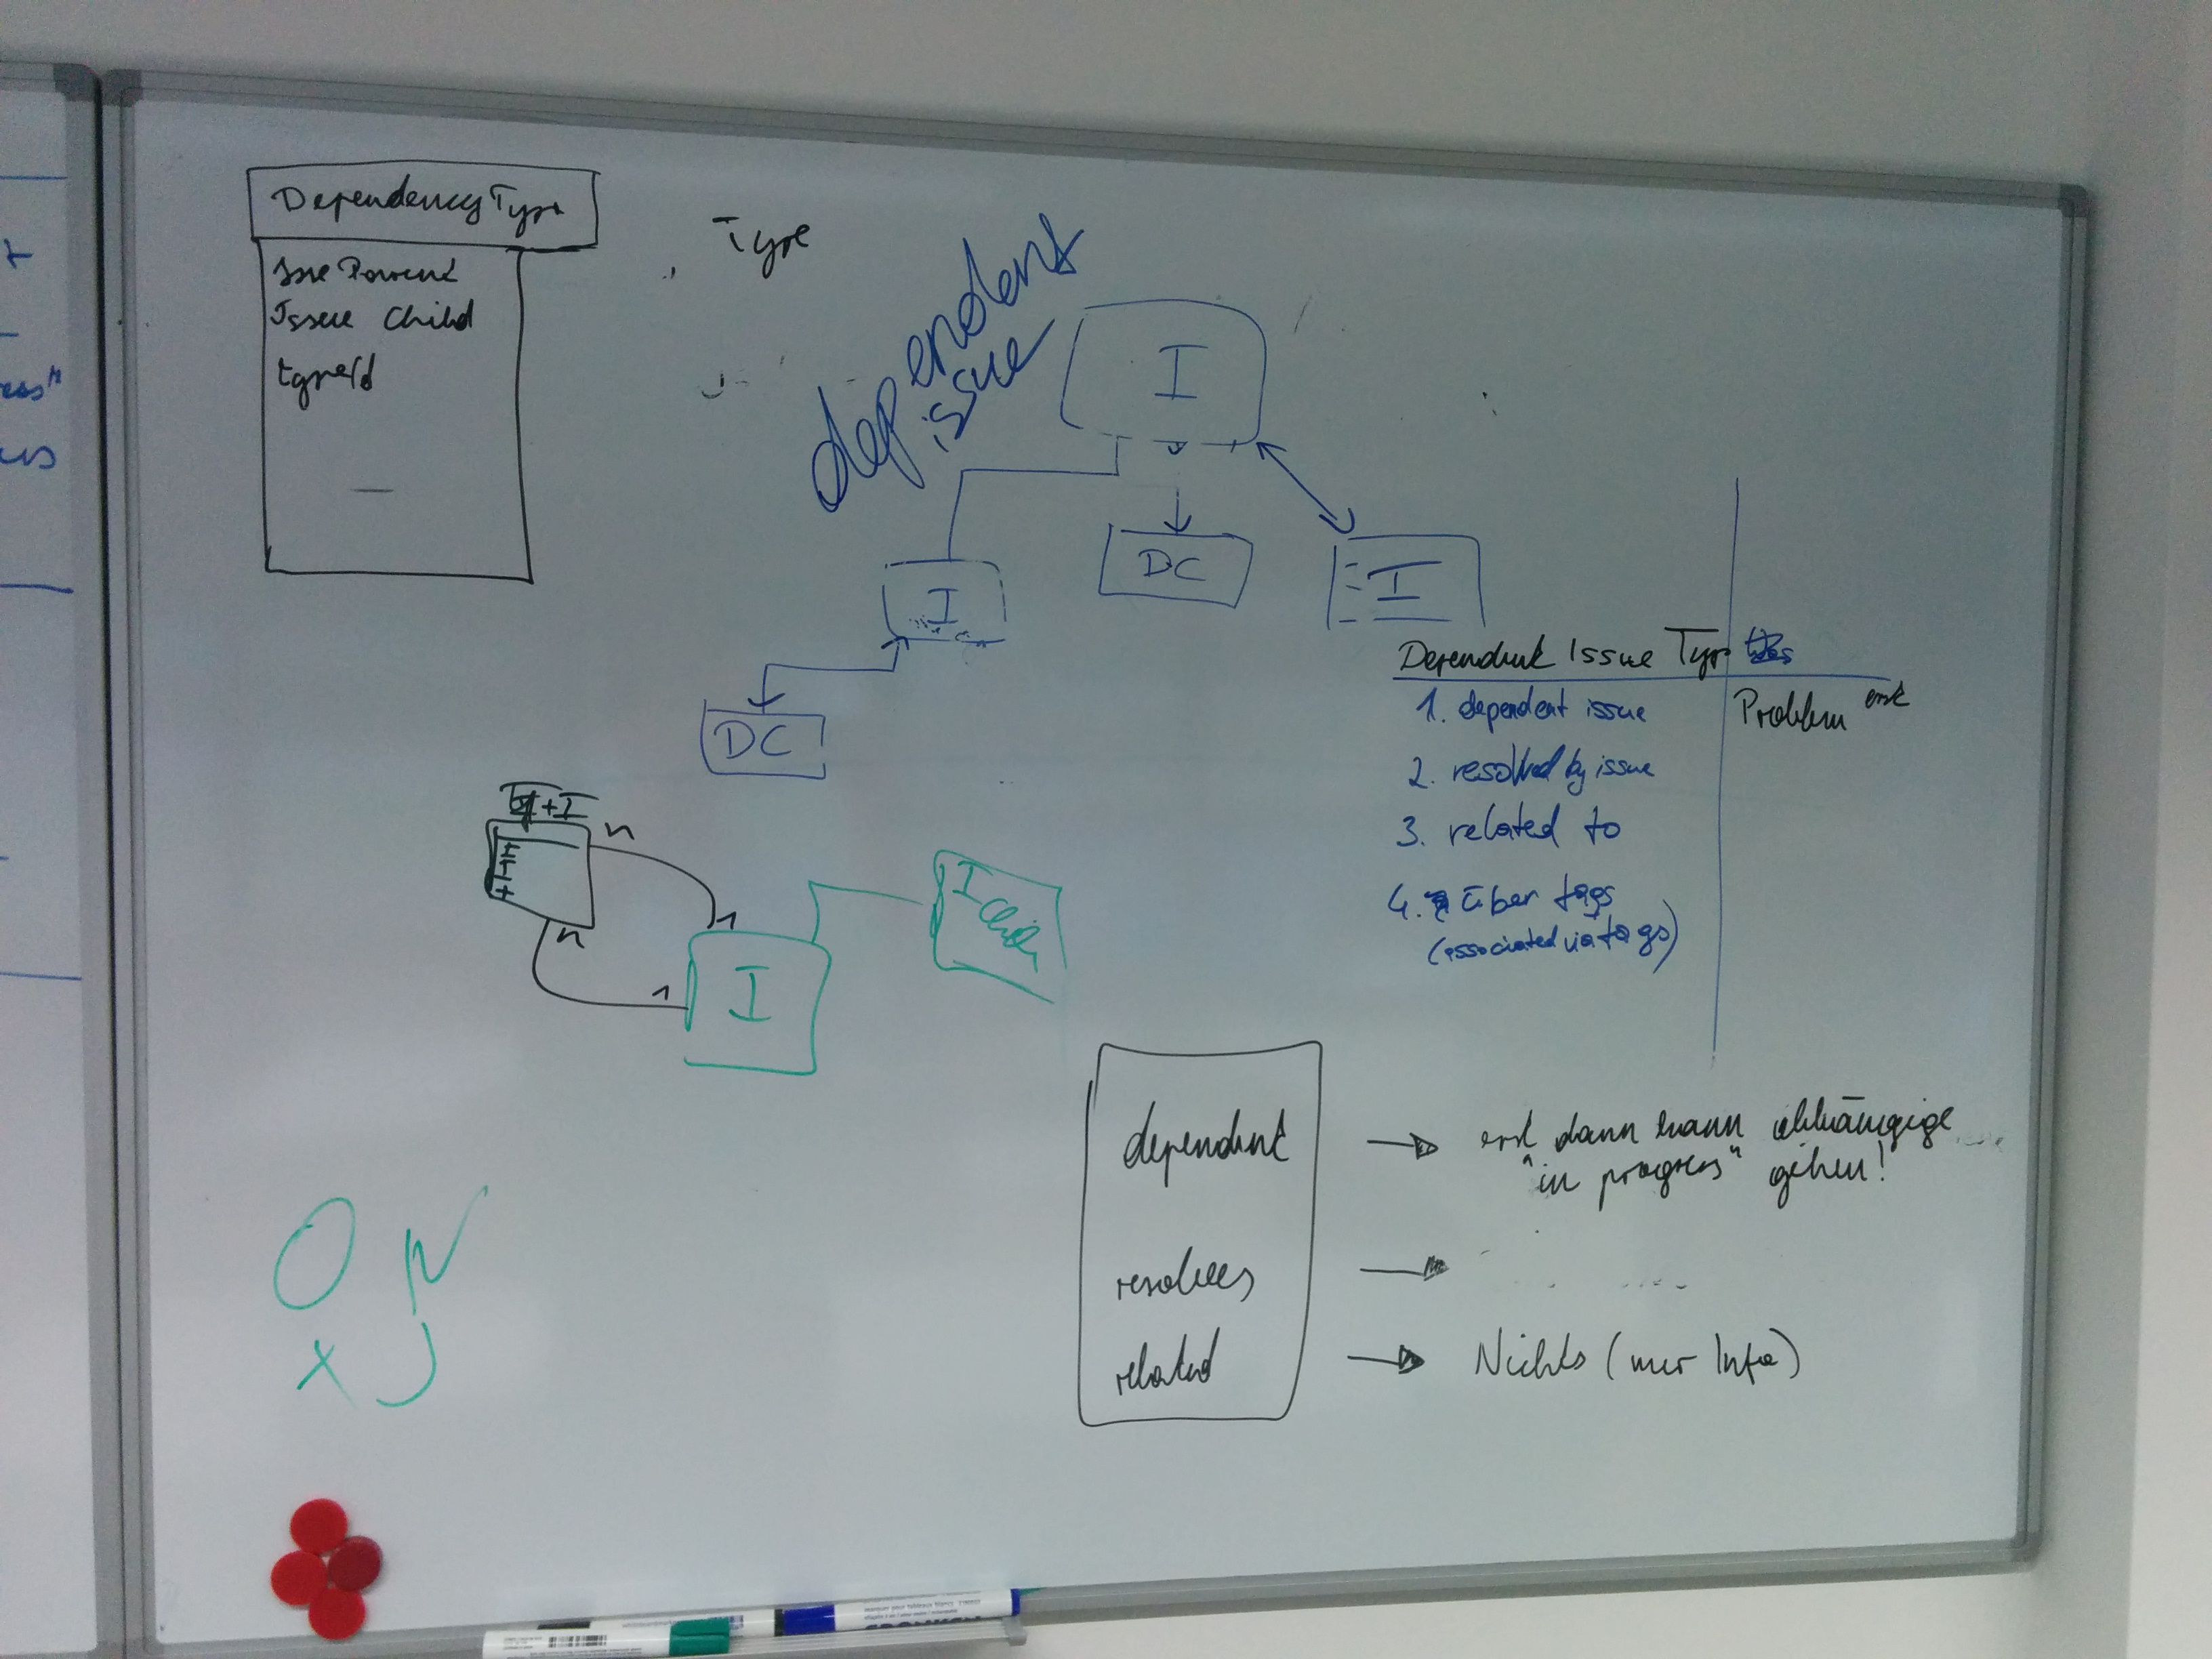 DependencyType
Type
Isse Parent
Issue Child
typeId
dependent
issue
I
I
DC
I
DC
Dependent Issue Type
1. dependent issue
Problem
2. resolved by issue
3. related to
4. über tags
(associated via tags)
+ I
n
1
n
1
I
I
dependent
erst dann kann abhängige
"in progress" gehen!
resolves
related
Nichts (nur Info)